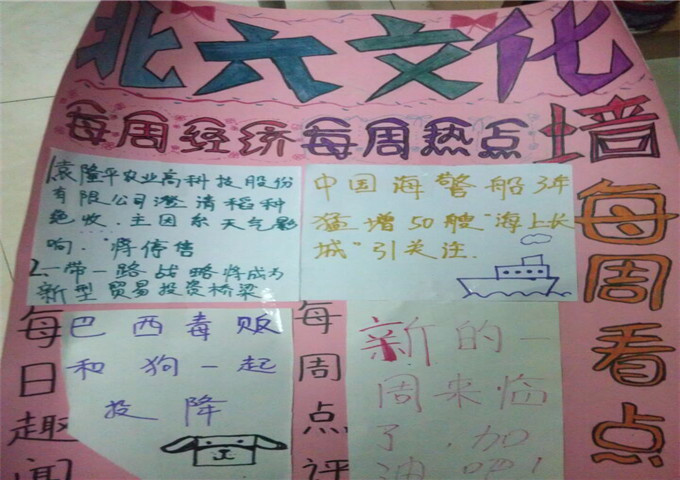 北六文化墙
每周经济 每周热点
每周看点
1.袁隆平农业高科技股份
有限公司澄清稻种
绝收.主因系天气影
响.将停售
2.一带一路战略将成为
新型贸易投资桥梁
中国海警船3年
猛增50艘"海上长
城"引关注.
每日趣闻
巴西毒贩
和狗一起
投降
每周点评
新的一
周来临
了,加
油吧!